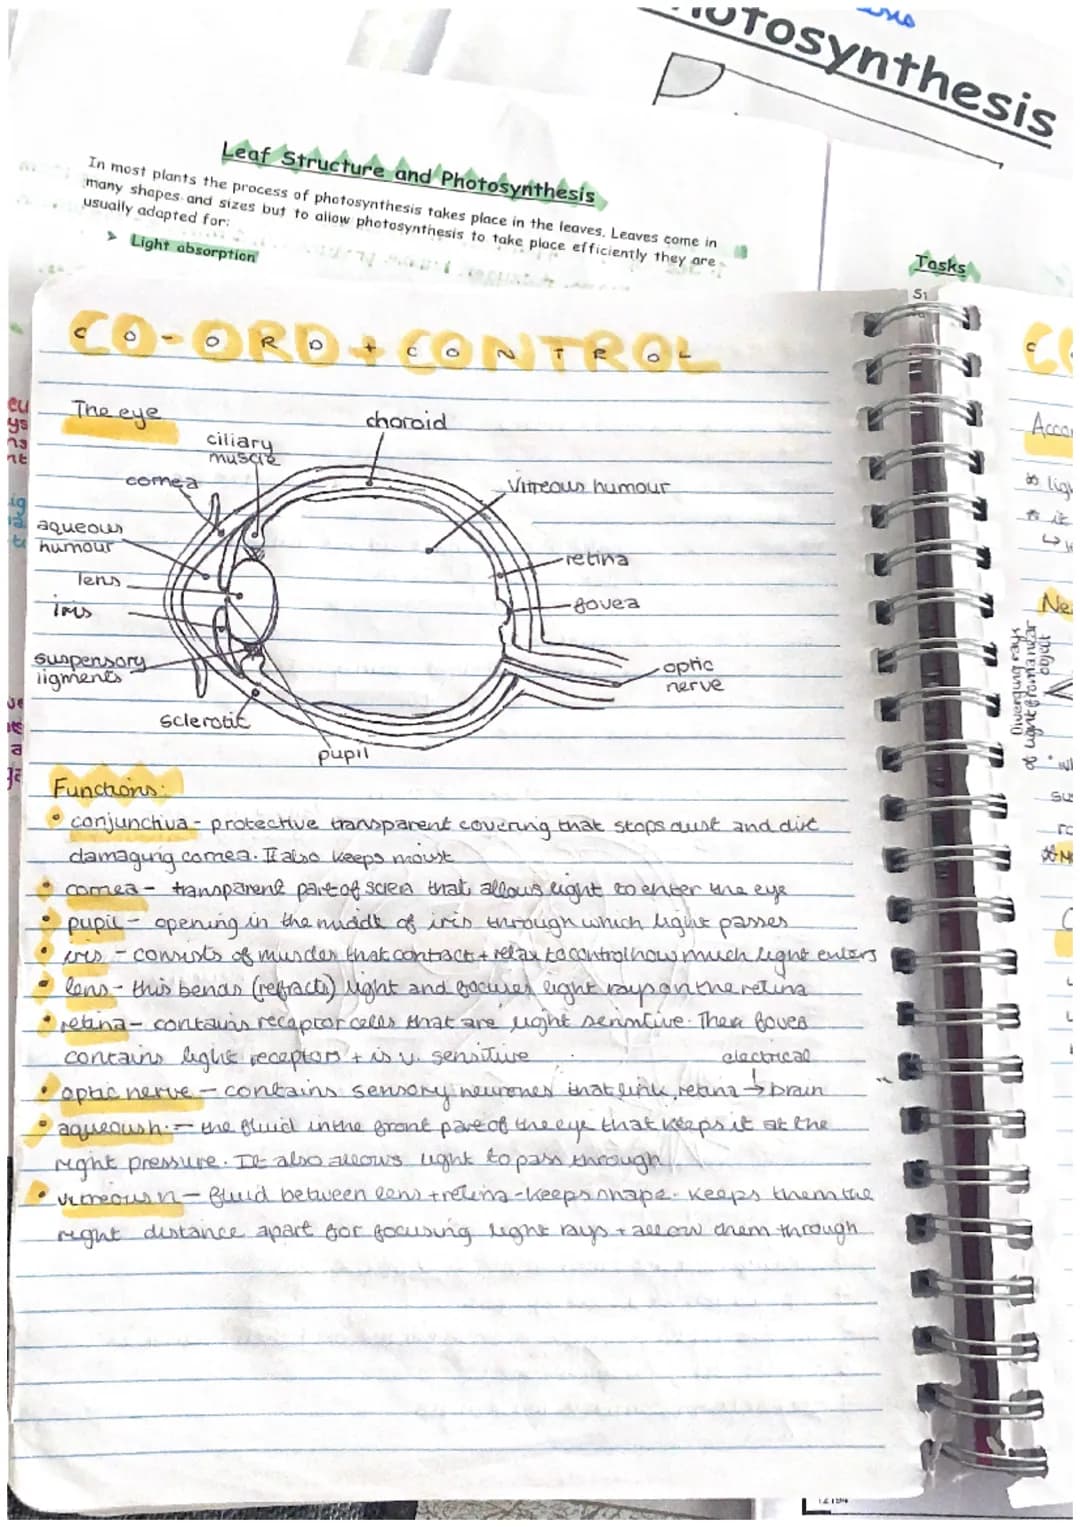 otosynthesis
Leaf Structure and Photosynthesis
In most plants the process of photosynthesis takes place in the leaves. Leaves come in
many shapes and sizes but to allow photosynthesis to take place efficiently they are
usually adapted for:
➤ Light absorption
Tasks
CO-ORD + CONTROL
The eye
choroid
ciliary
muscle
cornea
vitreous humour
aqueous
humour
retina
lens
fovea
iris
suspensory
ligments
optic
nerve
sclerotic
pupil
Functions:
• conjunctiva - protective transparent covering that stops dust and dirt
damaging cornea. It also keeps moist
• cornea - transparent part of sclera that allows light to enter the eye
• pupil - opening in the middle of iris through which light passes
• iris - consists of muscles that contract + relax to control how much light enters
• lens - this bends (refracts) light and focuses light rays on the retina
• retina - contains receptor cells that are light sensitive. Then fovea
contains light receptors + is v. sensitive
electrical
• optic nerve - contains sensory neurones that link retina → brain
• aqueous h. - the fluid in the front part of the eye that keeps it at the
right pressure. It also allows light to pass through
• vitreous h - fluid between lens + retina - keeps shape. Keeps them the
right distance apart for focusing light rays + allow them through
Diverging rays
of light from a near
object